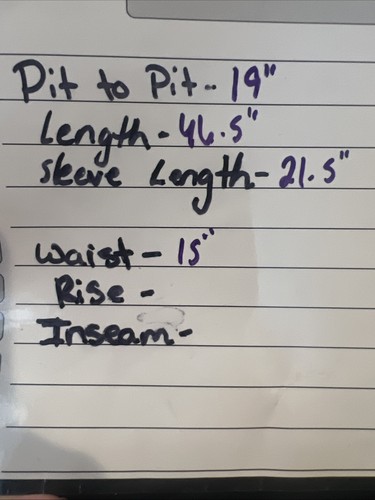 Pit to Pit - 19"
Length - 46.5"
Sleeve Length - 21.5"
Waist - 15"
Rise -
Inseam -